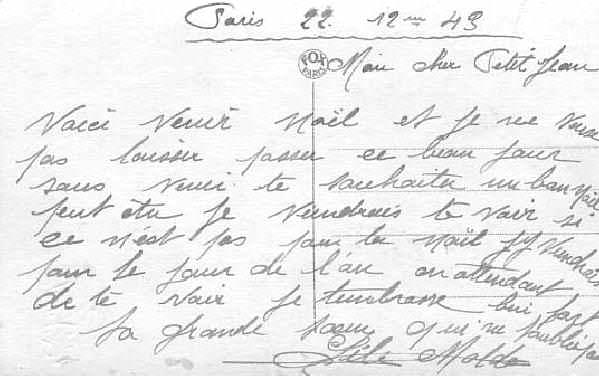 Paris 22. 12 43
FOX PARIS
Mon cher Petit Jean
Voici venir Noël et je ne veux
pas laisser passer ce beau jour
sans venir te souhaiter un bon Noël
peut être je viendrais te voir si
ce n'est pas pour la Noël j'y viendrés
pour le jour de l'an en attendant
de te voir je t'embrasse bien fort
ta grande soeur qui ne t'oublie pas